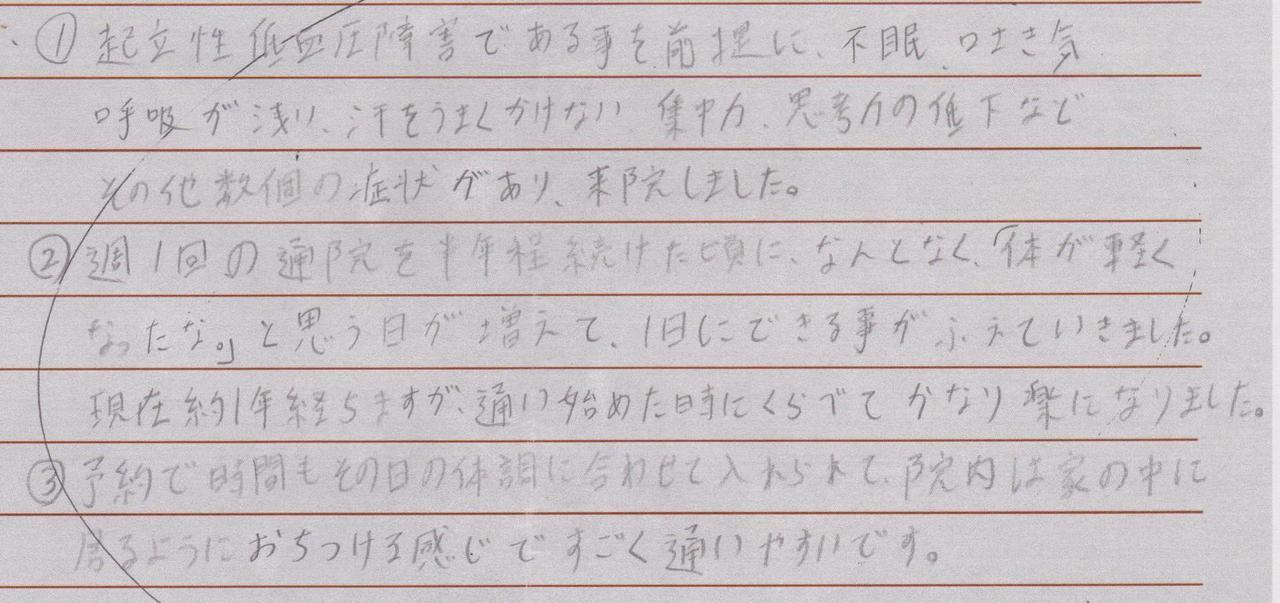 ① 起立性低血圧障害である事を前提に、不眠、吐き気
呼吸が浅い、汗をうまくかけない、集中力、思考力の低下など
その他数個の症状があり、来院しました。
② 週1回の通院を半年程続けた頃に、なんとなく、「体が軽く
なったな。」と思う日が増えて、1日にできる事がふえていきました。
現在約1年経ちますが、通い始めた時にくらべてかなり楽になりました。
③ 予約で時間もその日の体調に合わせて入れられて、院内は家の中に
居るようにおちつける感じですごく通いやすいです。